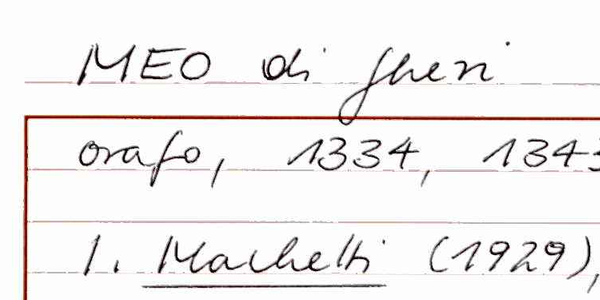 MEO di Gheri
orafo, 1334, 1343
I. Machetti (1929),